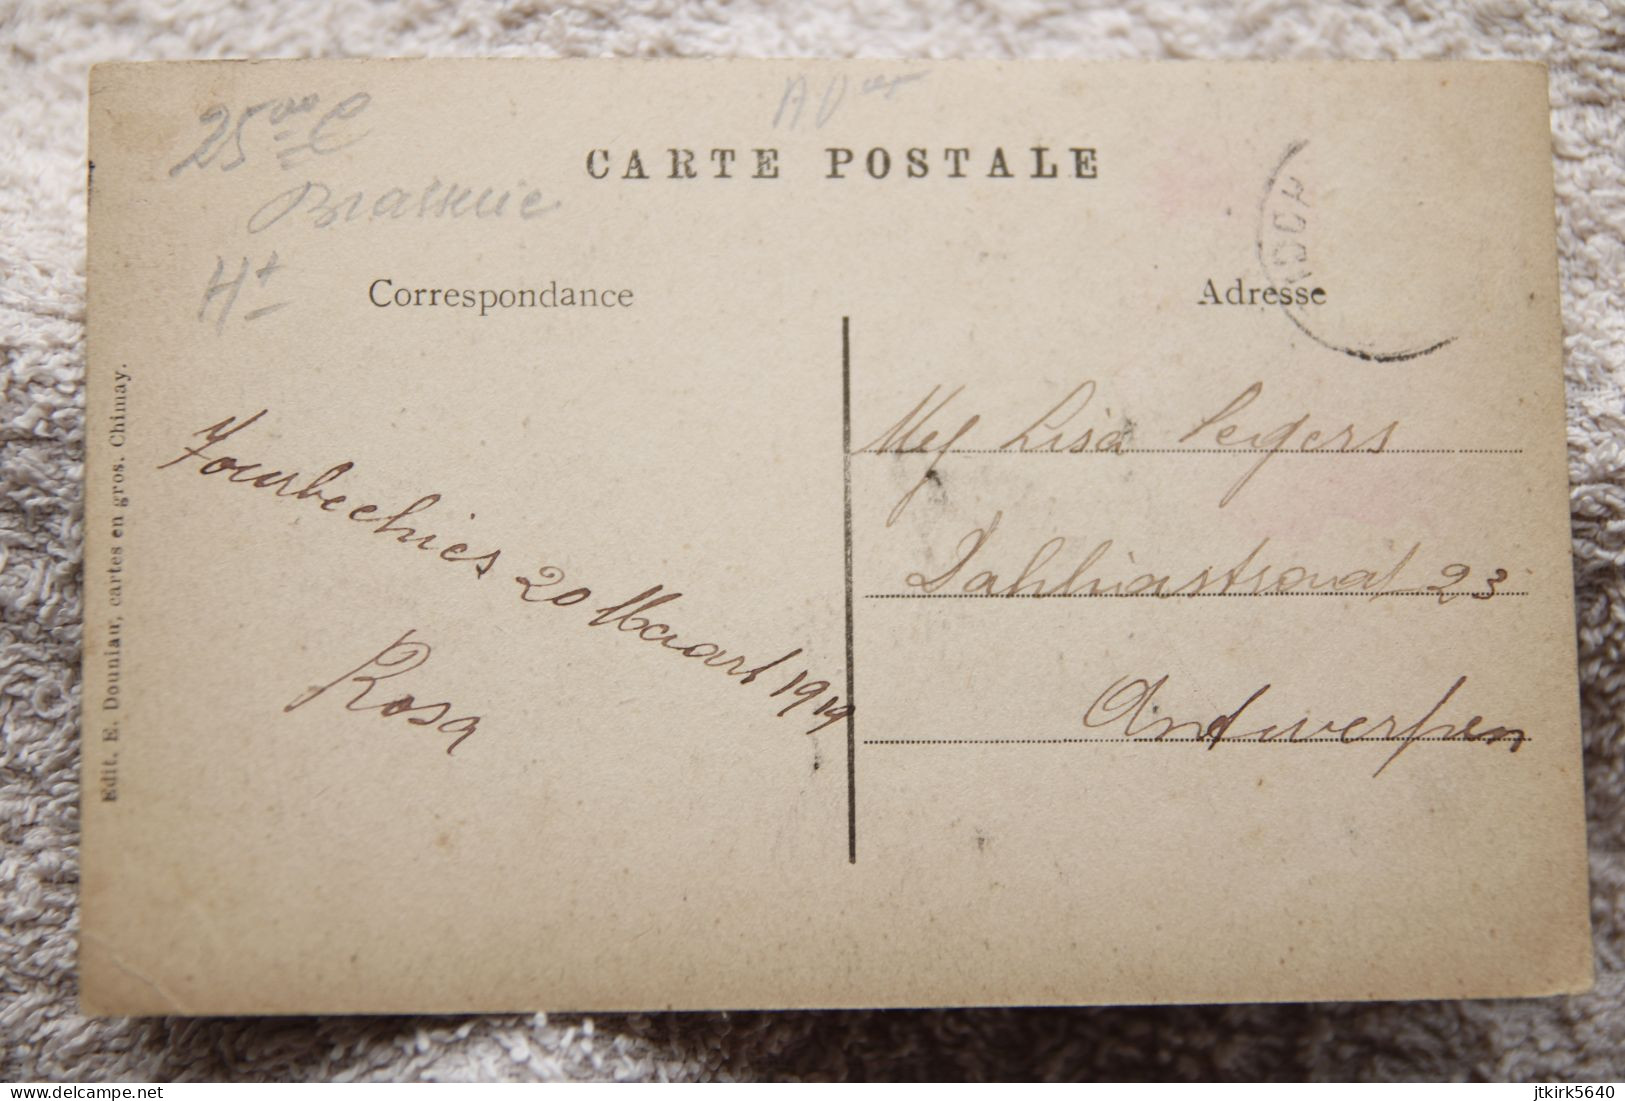 25
Brasserie
H+
CARTE POSTALE
Correspondance
Adresse
Edit. E. Douniau, cartes en gros. Chimay.
Fourbechies 20 Maart 1914
Rosa
Mej Lisa Segers
Dahliastraat 23
Antwerpen
www.delcampe.net
jtkirk5640